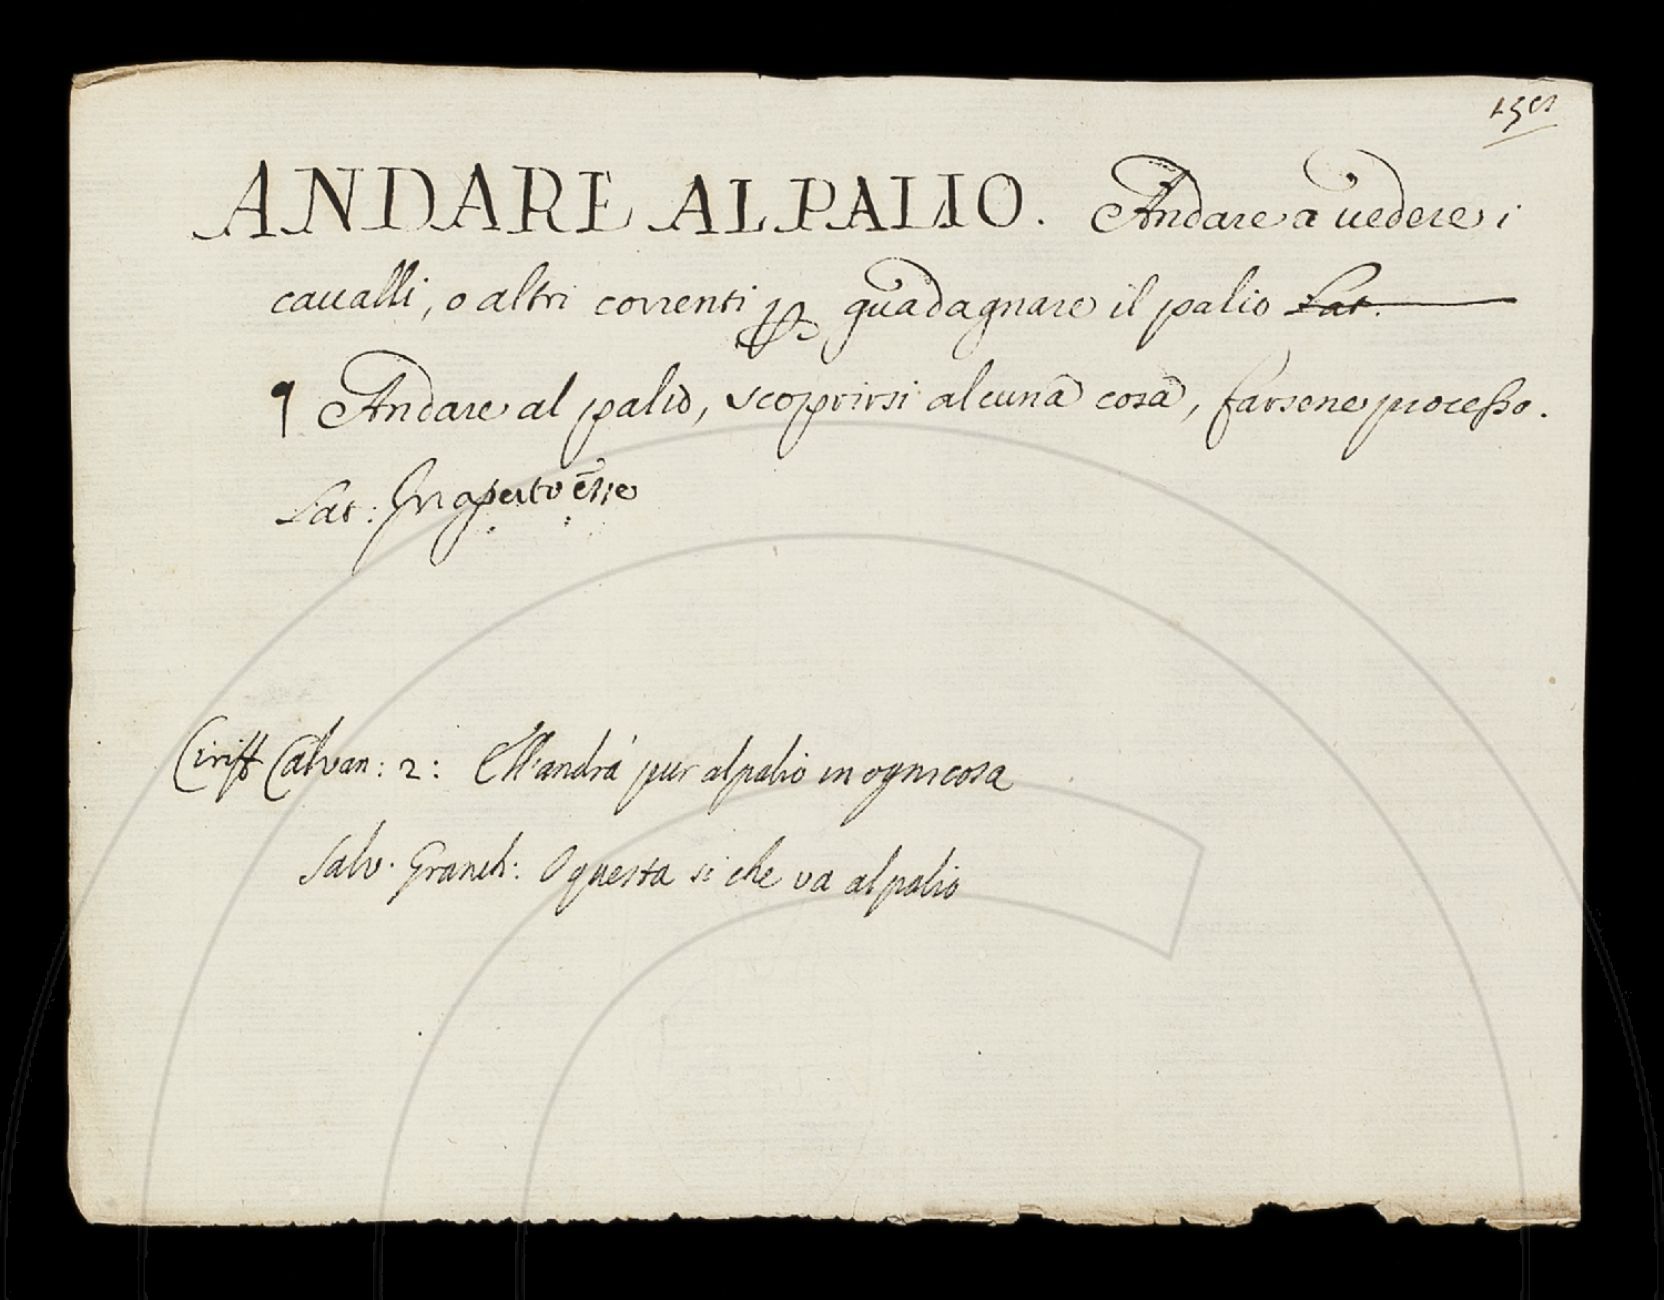 ANDARE AL PALIO. Andare a uedere i
caualli, o altri correnti ꝑ guadagnare il palio Lat.
¶ Andare al palio, scoprirsi alcuna cosa, farsene processo.
Lat: In aperto
Ciriff Calvan: 2: Ell'andrá pur al palio in ogni cosa
Salv. Granch: O questa si che va al palio